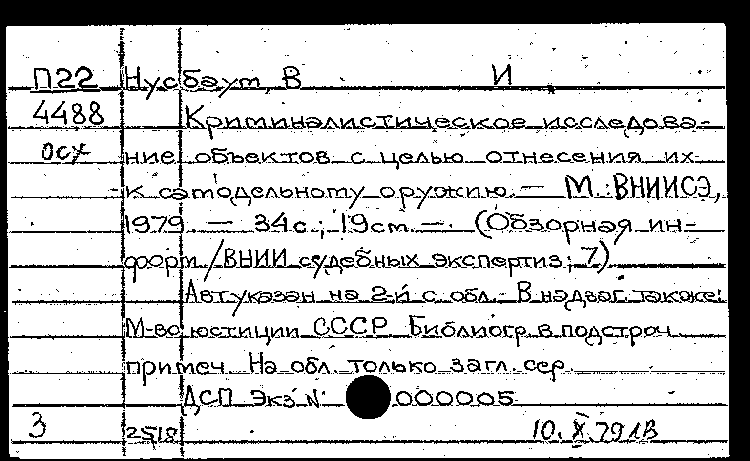 П22 Нусбаум, В И.
4488 Криминалистическое исследова-
осх ние объектов с целью отнесения их
к самодельному оружию. — М.: ВНИИСЭ,
1979. — 34с.; 19см. — (Обзорная ин-
форм/ВНИИ судебных экспертиз; 7)
Авт указан на 2-й с обл.- В надзаг. также:
М-во юстиции СССР Библиогр. в подстроч
примеч. На обл. только загл. сер.
ДСП Экз № 000005
3 2518 10.X.79 1В